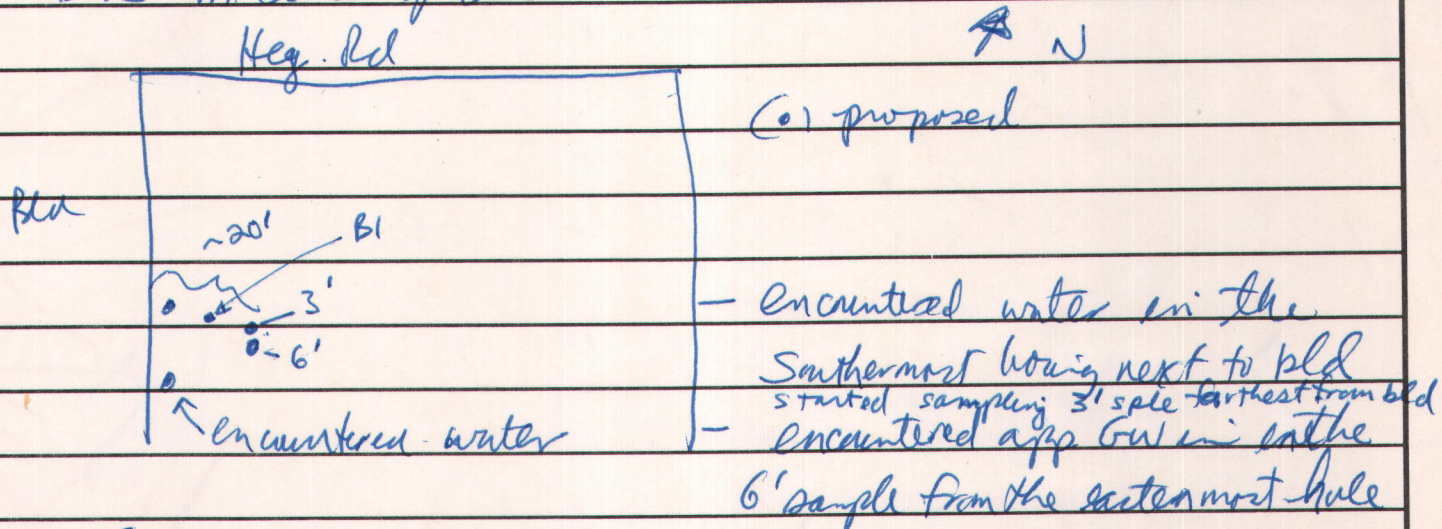 Heg. Rd
N
(•) proposed
Bld
~20'
B1
3'
6'
encountered water
— encountered water in the
Southermost boring next to bld
started sampling 3' sple farthest from bld
— encountered app GW in in the
6' sample from the eastern most hole